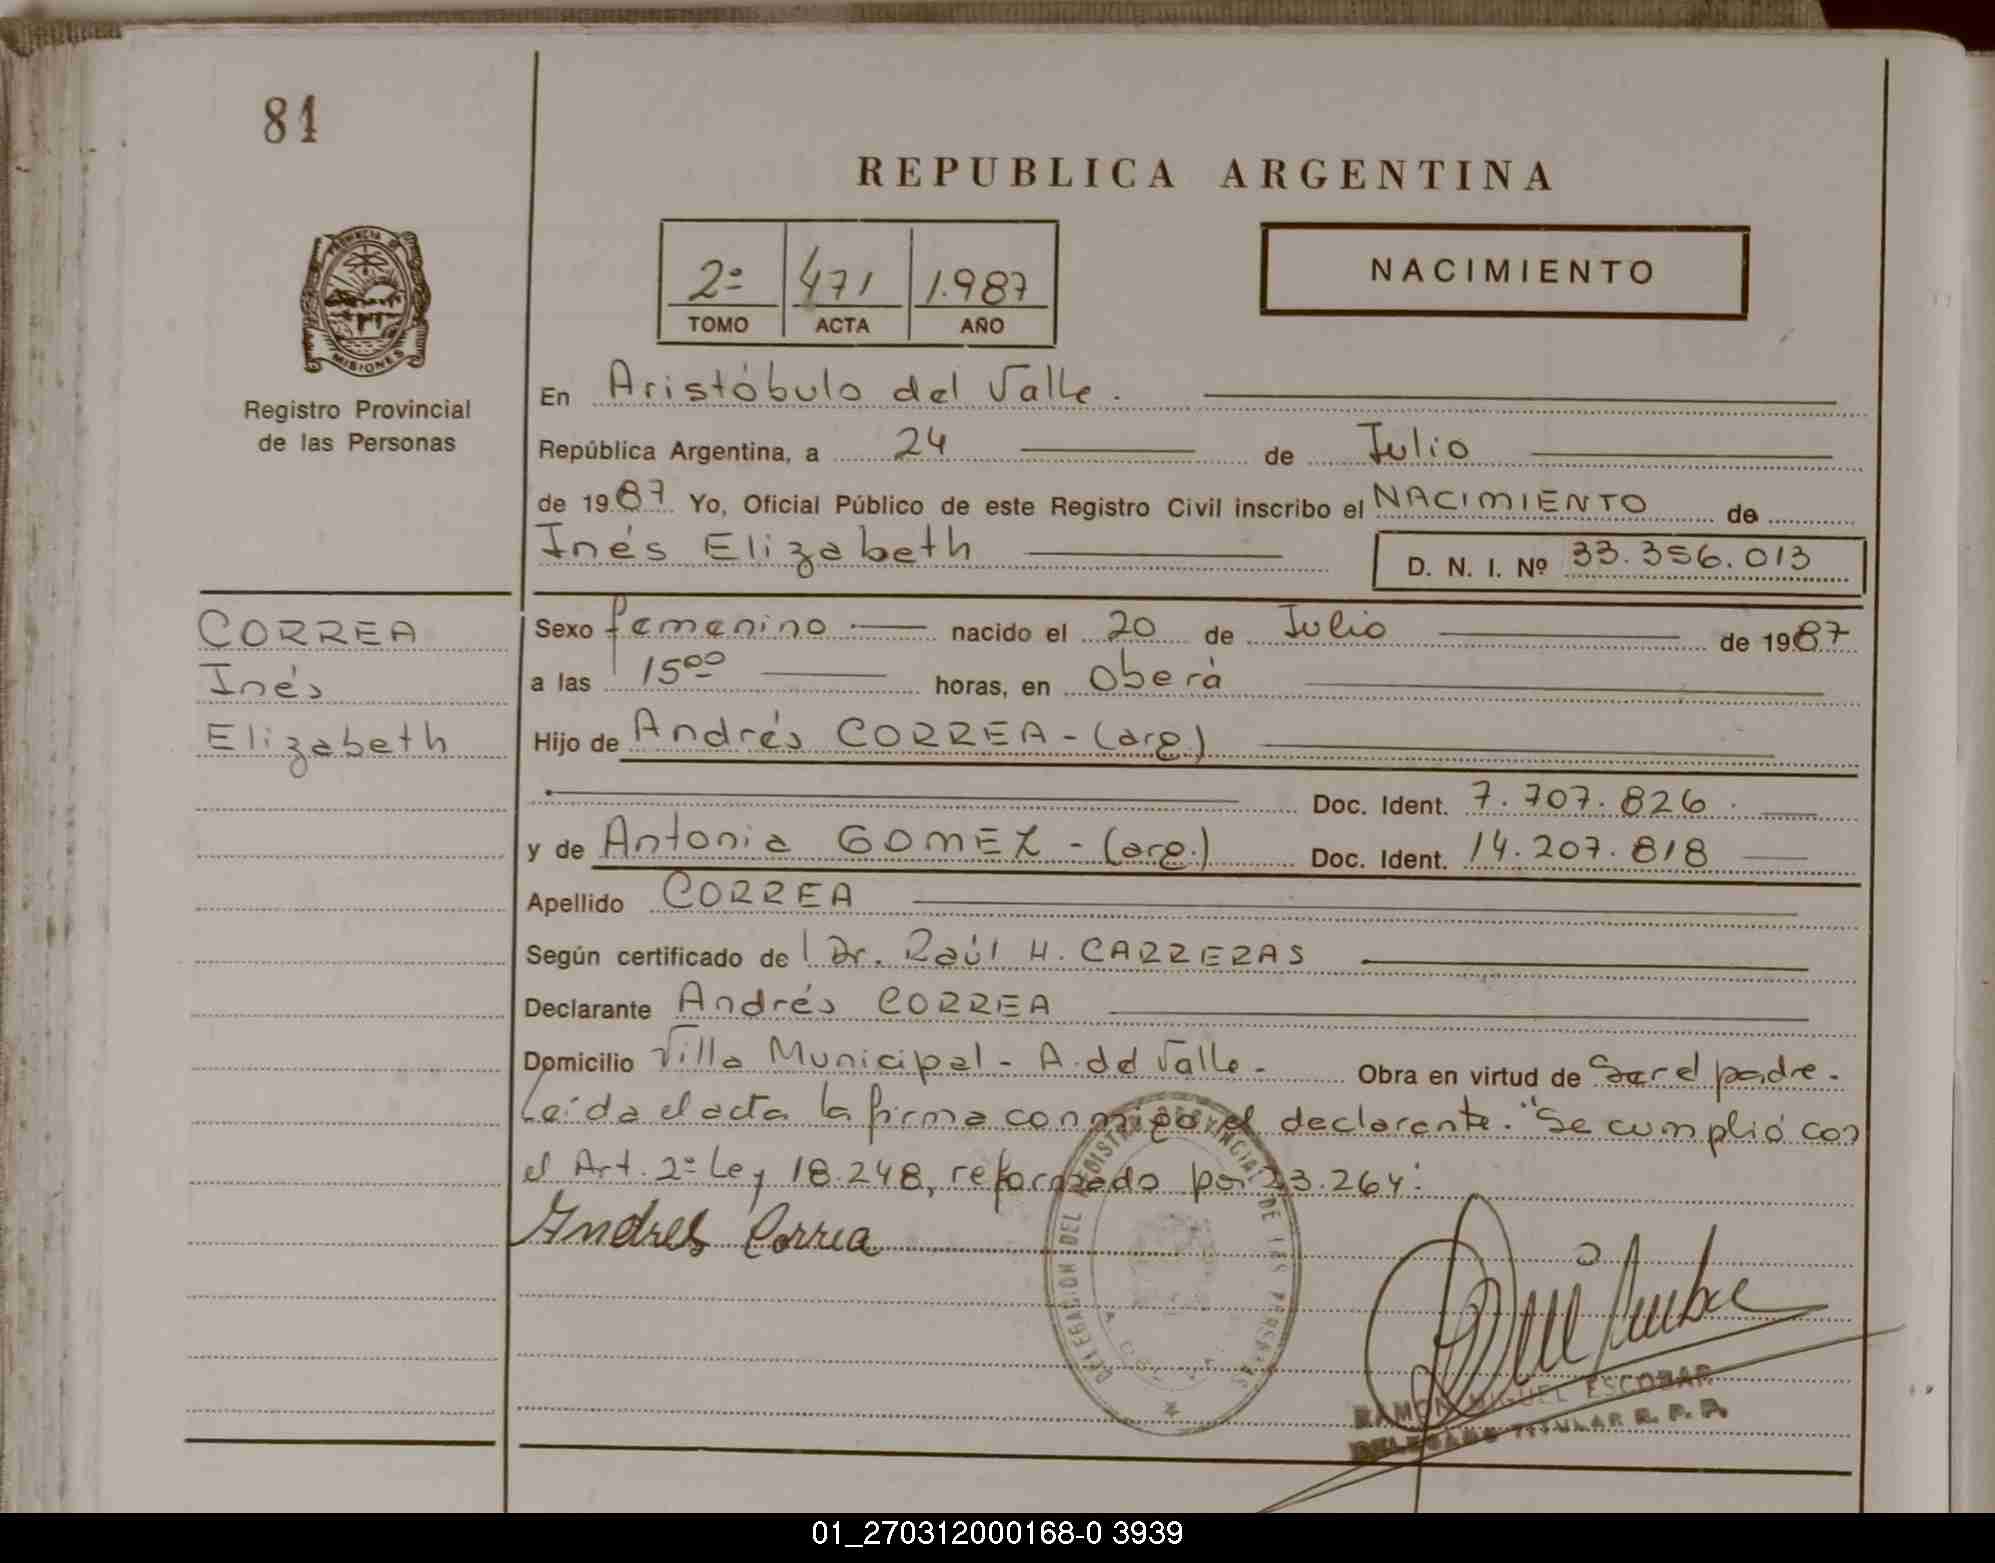 81
REPUBLICA ARGENTINA
PROVINCIA DE
MISIONES
Registro Provincial
de las Personas
2º 471 1.987
TOMO ACTA AÑO
NACIMIENTO
En Aristóbulo del Valle.
República Argentina, a 24 de Julio
de 1987 Yo, Oficial Público de este Registro Civil inscribo el NACIMIENTO de
Inés Elizabeth D. N. I. Nº 33.356.013
CORREA
Inés
Elizabeth
Sexo femenino nacido el 20 de Julio de 1987
a las 15ºº horas, en Oberá
Hijo de Andrés CORREA - (arg.)
Doc. Ident. 7.707.826.
y de Antonia GOMEZ - (arg.) Doc. Ident. 14.207.818
Apellido CORREA
Según certificado de l Dr. Raúl H. CARRERAS
Declarante Andrés CORREA
Domicilio Villa Municipal - A. del Valle. Obra en virtud de Ser el padre.
Leída el acta la firma conmigo el declarante. "Se cumplió con
el Art. 2º Ley 18.248, reformado por 23.264:
Andres Correa
DELEGACION DEL REGISTRO PROVINCIAL DE LAS PERSONAS
RAMON MIGUEL ESCOBAR
DELEGADO TITULAR R. P. P.
01_270312000168-0 3939